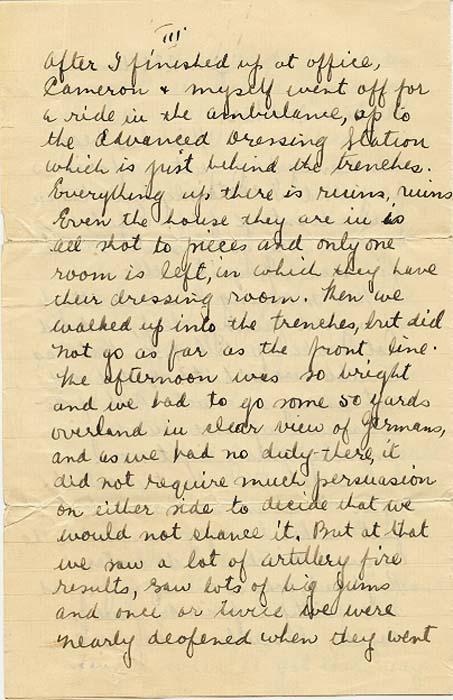 III
After I finished up at office,
Cameron & myself went off for
a ride in the ambulance, up to
the Advanced Dressing Station
which is just behind the trenches.
Everything up there is ruins, ruins
Even the house they are in is
all shot to pieces and only one
room is left, in which they have
their dressing room. Then we
walked up into the trenches, but did
not go as far as the front line.
The afternoon was so bright
and we had to go some 50 yards
overland in clear view of Germans,
and as we had no duty there, it
did not require much persuasion
on either side to decide that we
would not chance it. But at that
we saw a lot of artillery fire
results, saw lots of big guns
and once or twice we were
nearly deafened when they went